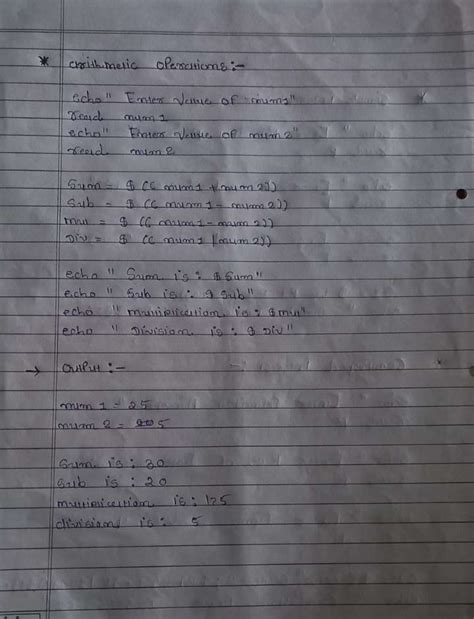 * Arithmetic operations:-
echo" Enter Value of num1"
read num1
echo" Enter Value of num2"
read num2
Sum = $ (( num1 + num2))
Sub = $ (( num1 - num2))
mul = $ (( num1 - num2))
Div = $ (( num1 / num2))
echo " Sum is : $ Sum"
echo " Sub is : $ Sub"
echo " multiplication is : $ mul"
echo " Division is : $ Div"
→ Output :-
num 1 = 25
num 2 = 5
Sum is : 30
Sub is : 20
multiplication is : 125
division is : 5